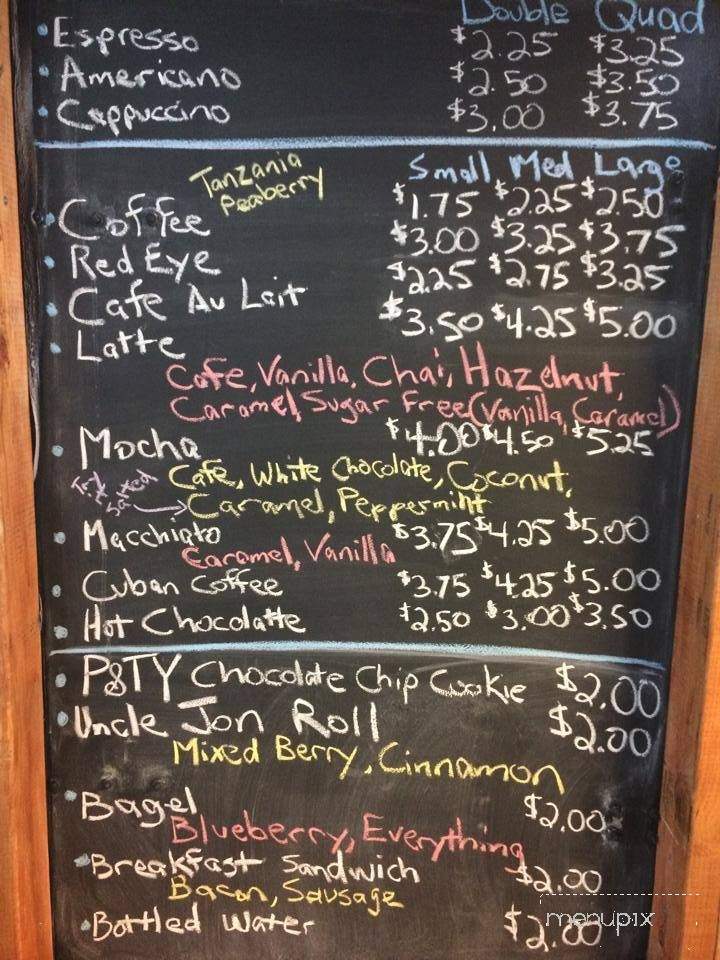 Double Quad
Espresso $2.25 $3.25
Americano $2.50 $3.50
Cappuccino $3.00 $3.75
Tanzania
Peaberry
Small Med Large
Coffee $1.75 $2.25 $2.50
Red Eye $3.00 $3.25 $3.75
Cafe Au Lait $2.25 $2.75 $3.25
Latte $3.50 $4.25 $5.00
Cafe, Vanilla, Chai, Hazelnut,
Caramel, Sugar Free (Vanilla, Caramel)
Mocha $4.00 $4.50 $5.25
Try Salted
Cafe, White Chocolate, Coconut,
Caramel, Peppermint
Macchiato $3.75 $4.25 $5.00
Caramel, Vanilla
Cuban Coffee $3.75 $4.25 $5.00
Hot Chocolatte $2.50 $3.00 $3.50
P&TY Chocolate Chip Cookie $2.00
Uncle Jon Roll $2.00
Mixed Berry, Cinnamon
Bagel $2.00
Blueberry, Everything
Breakfast Sandwich $2.00
Bacon, Sausage
Bottled Water $2.00
menupix